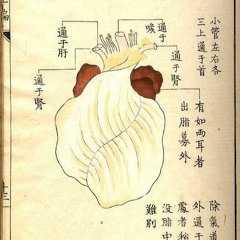 小管左右各
三上通于首
通于
喉
通于腎
通于肝
通于腎
有如两耳者
出脂募外
除氣道
外通于
處者
没脂中
難別
編
十三